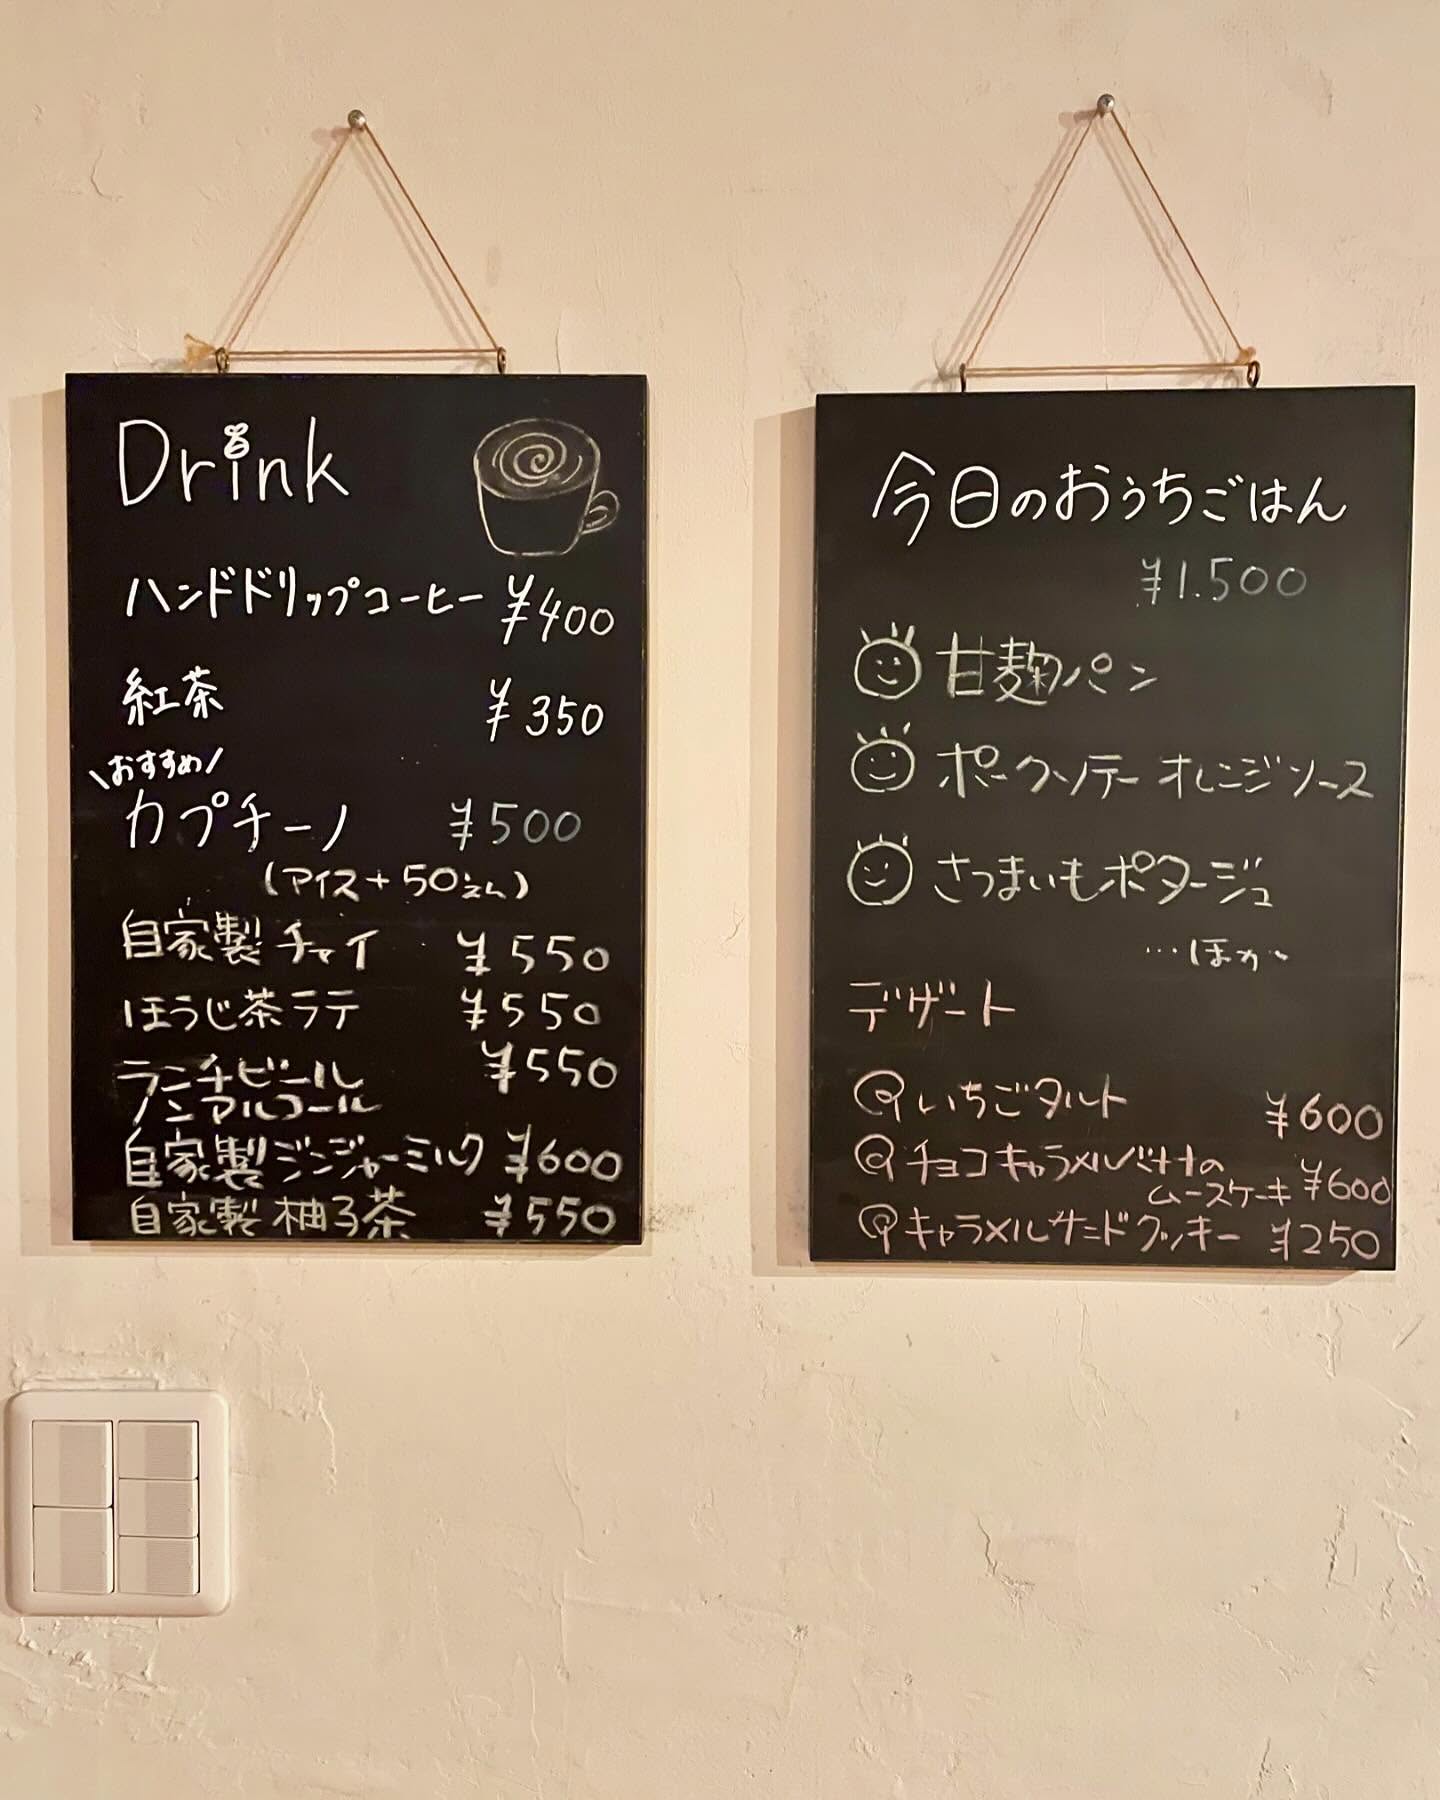 Drink
ハンドドリップコーヒー ¥400
紅茶 ¥350
\おすすめ/
カプチーノ ¥500
(アイス+50えん)
自家製チャイ ¥550
ほうじ茶ラテ ¥550
ランチビール ¥550
ノンアルコール
自家製ジンジャーミルク ¥600
自家製 柚子茶 ¥550
今日のおうちごはん
¥1.500
甘麹パン
ポークソテー オレンジソース
さつまいもポタージュ
…ほか
デザート
いちごタルト ¥600
チョコキャラメルバナナの
ムースケーキ ¥600
キャラメルサンドクッキー ¥250